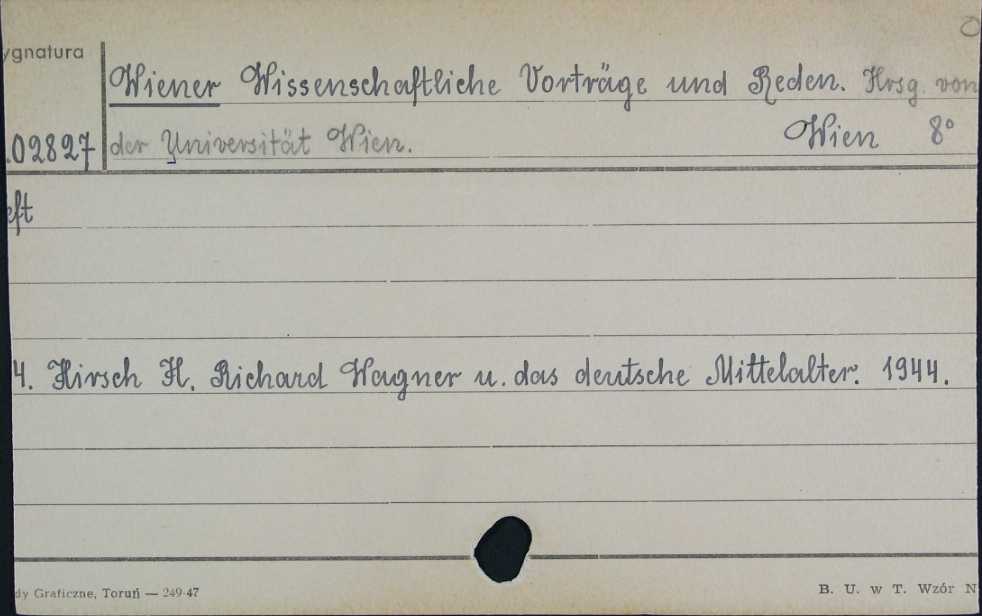 ygnatura
Wiener Wissenschaftliche Vorträge und Reden. Hrsg. von
.02827 der Universität Wien. Wien 8°
eft
4. Hirsch H. Richard Wagner u. das deutsche Mittelalter. 1944.
dy Graficzne, Toruń — 249-47
B. U. w T. Wzór N